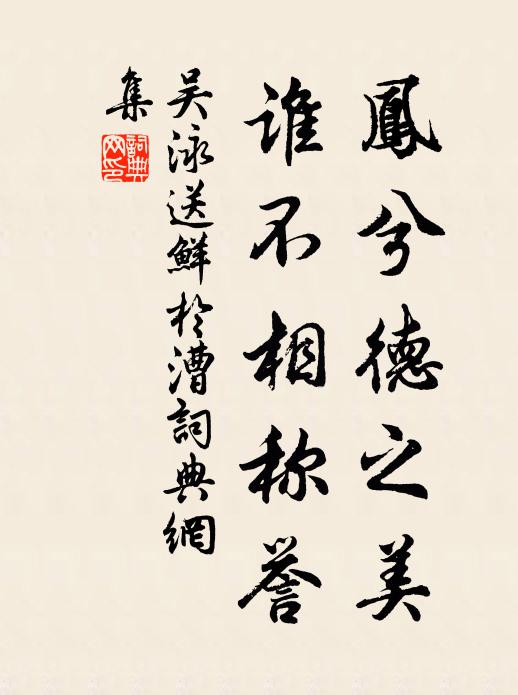 鳳兮德之美
誰不相称誉
吴泳送鮮於漕詞典網
集
詞典
网印